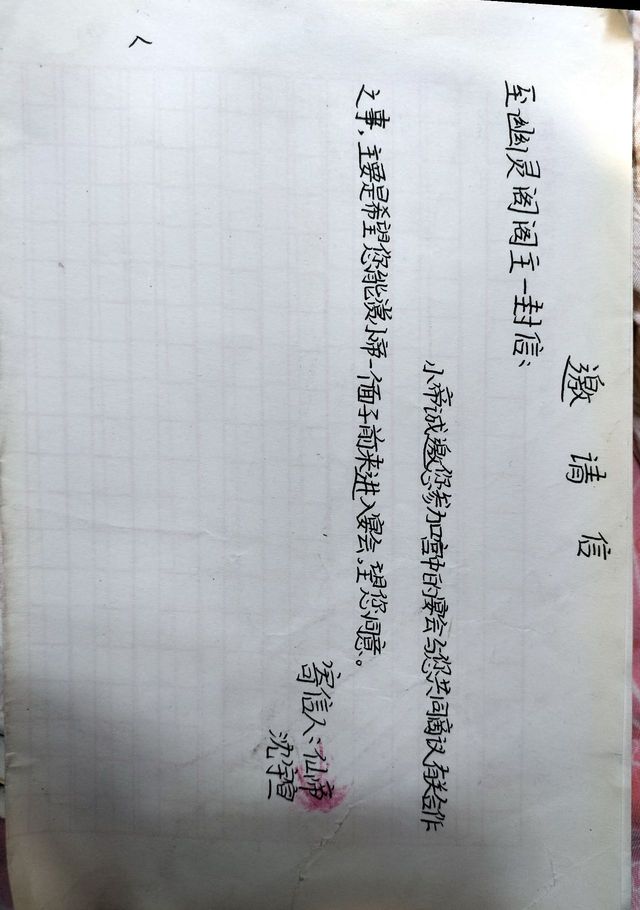 邀请信
至幽灵阁阁主一封信：
小帝诚邀您参加宫中的宴会与您共同商议有关合作
之事，主要是希望您能赏小帝一个面子前来进入宴会。望您同意。
寄信人：仙帝
沈宇宣